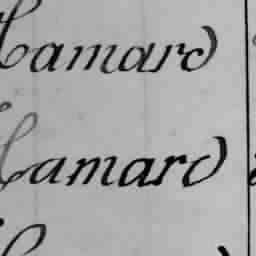 Hamard
Hamard